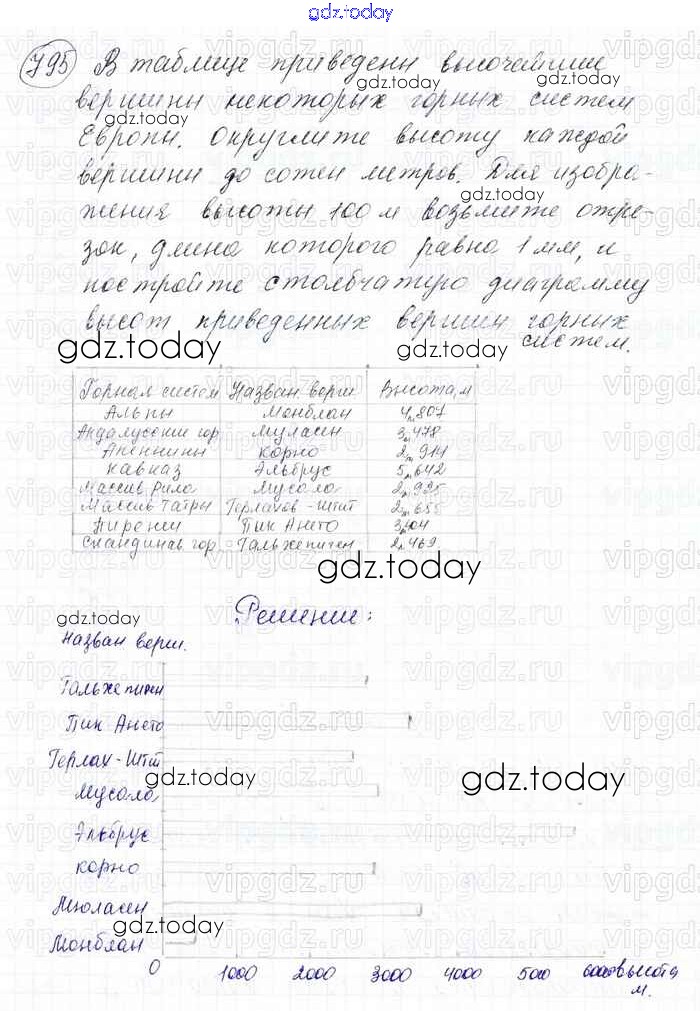 gdz.today
795 В таблице приведены высочейшие
gdz.today
gdz.today
вершины некоторых горных систем
Европы. Округлите высоту каждой
вершины до сотен метров. Для изобра-
gdz.today
жения высоты 100 м возьмите отре-
зок, длина которого равна 1 мм, и
постройте столбчатую диаграмму
высот приведенных вершин горных
систем.
gdz.today
gdz.today
Горная систем Назван верш Высота, м
Альпы Монблан 4,807
Андалусские гор Муласен 3,478
Апеннины Корно 2,914
Кавказ Эльбрус 5,642
Массив Рила Мусала 2,925
Массив Татры Герлахов-Штит 2,655
Пиренеи Пик Ането 3,404
Скандинав гор Гальхепиген 2,469
gdz.today
Решение:
gdz.today
Назван верш.
Гальхепиген
Пик Ането
Герлах-Штит
gdz.today
gdz.today
Мусала
Эльбрус
корно
Мюласен
gdz.today
Монблан
0 1000 2000 3000 4000 5000 6000 высота
м.
gdz.today